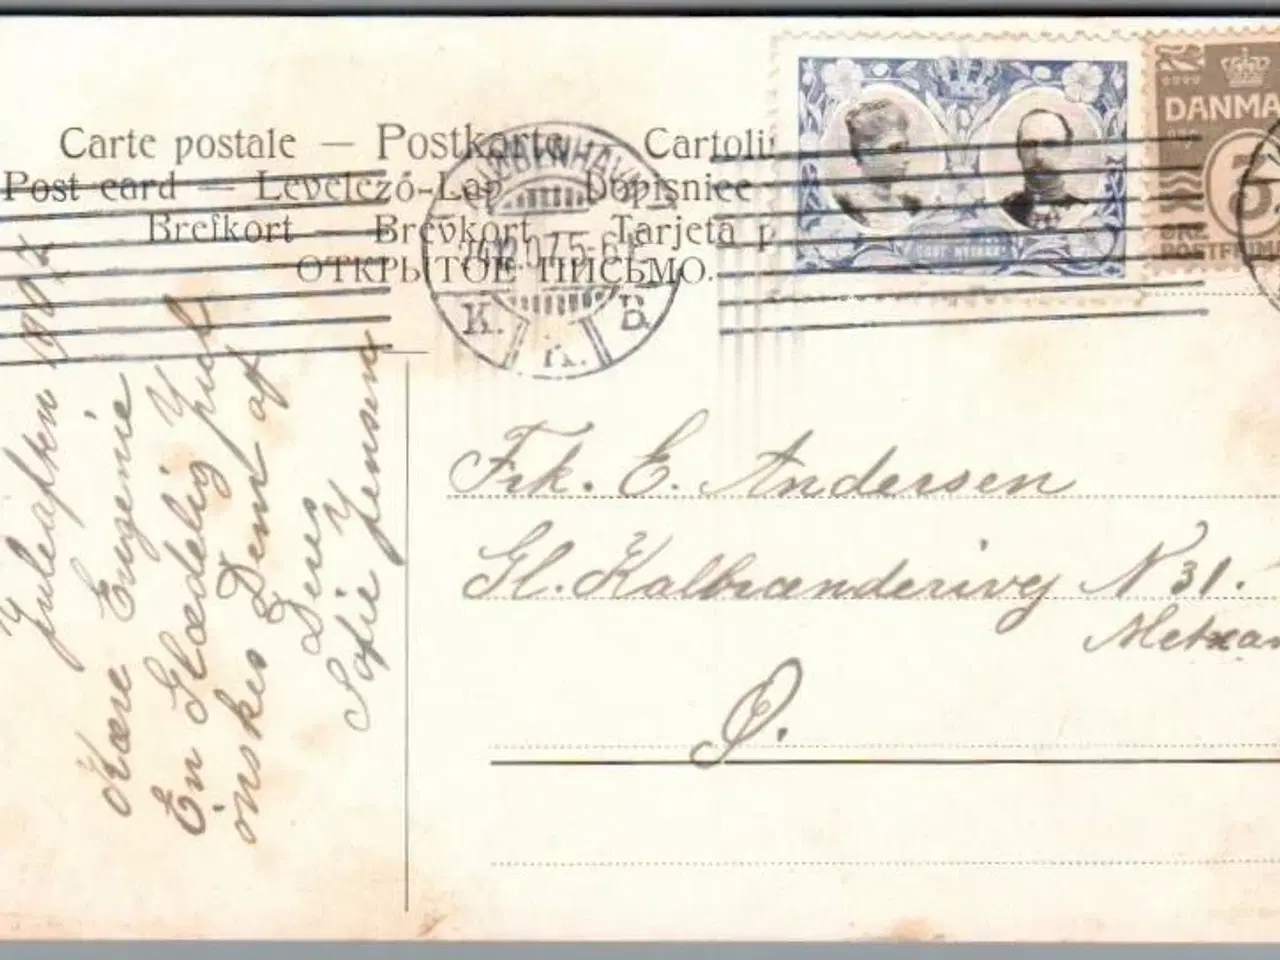 Carte postale — Postkarte Cartoli
Post card — Levelező-Lap Dopisnice
Brefkort — Brevkort Tarjeta p
ОТКРЫТОЕ ПИСЬМО.
KJØBENHAVN
12.07.5-6
K. B.
GODT NYTAAR
DANMA
3
ØRE
POSTFRIM
Juleaften 1907
Kære Eugenie
En Glædelig Jul
önskes Dem af
Deres
Sofie Jensen
Frk. E. Andersen
Gl. Kalkbrænderivej N 31.
Ø.